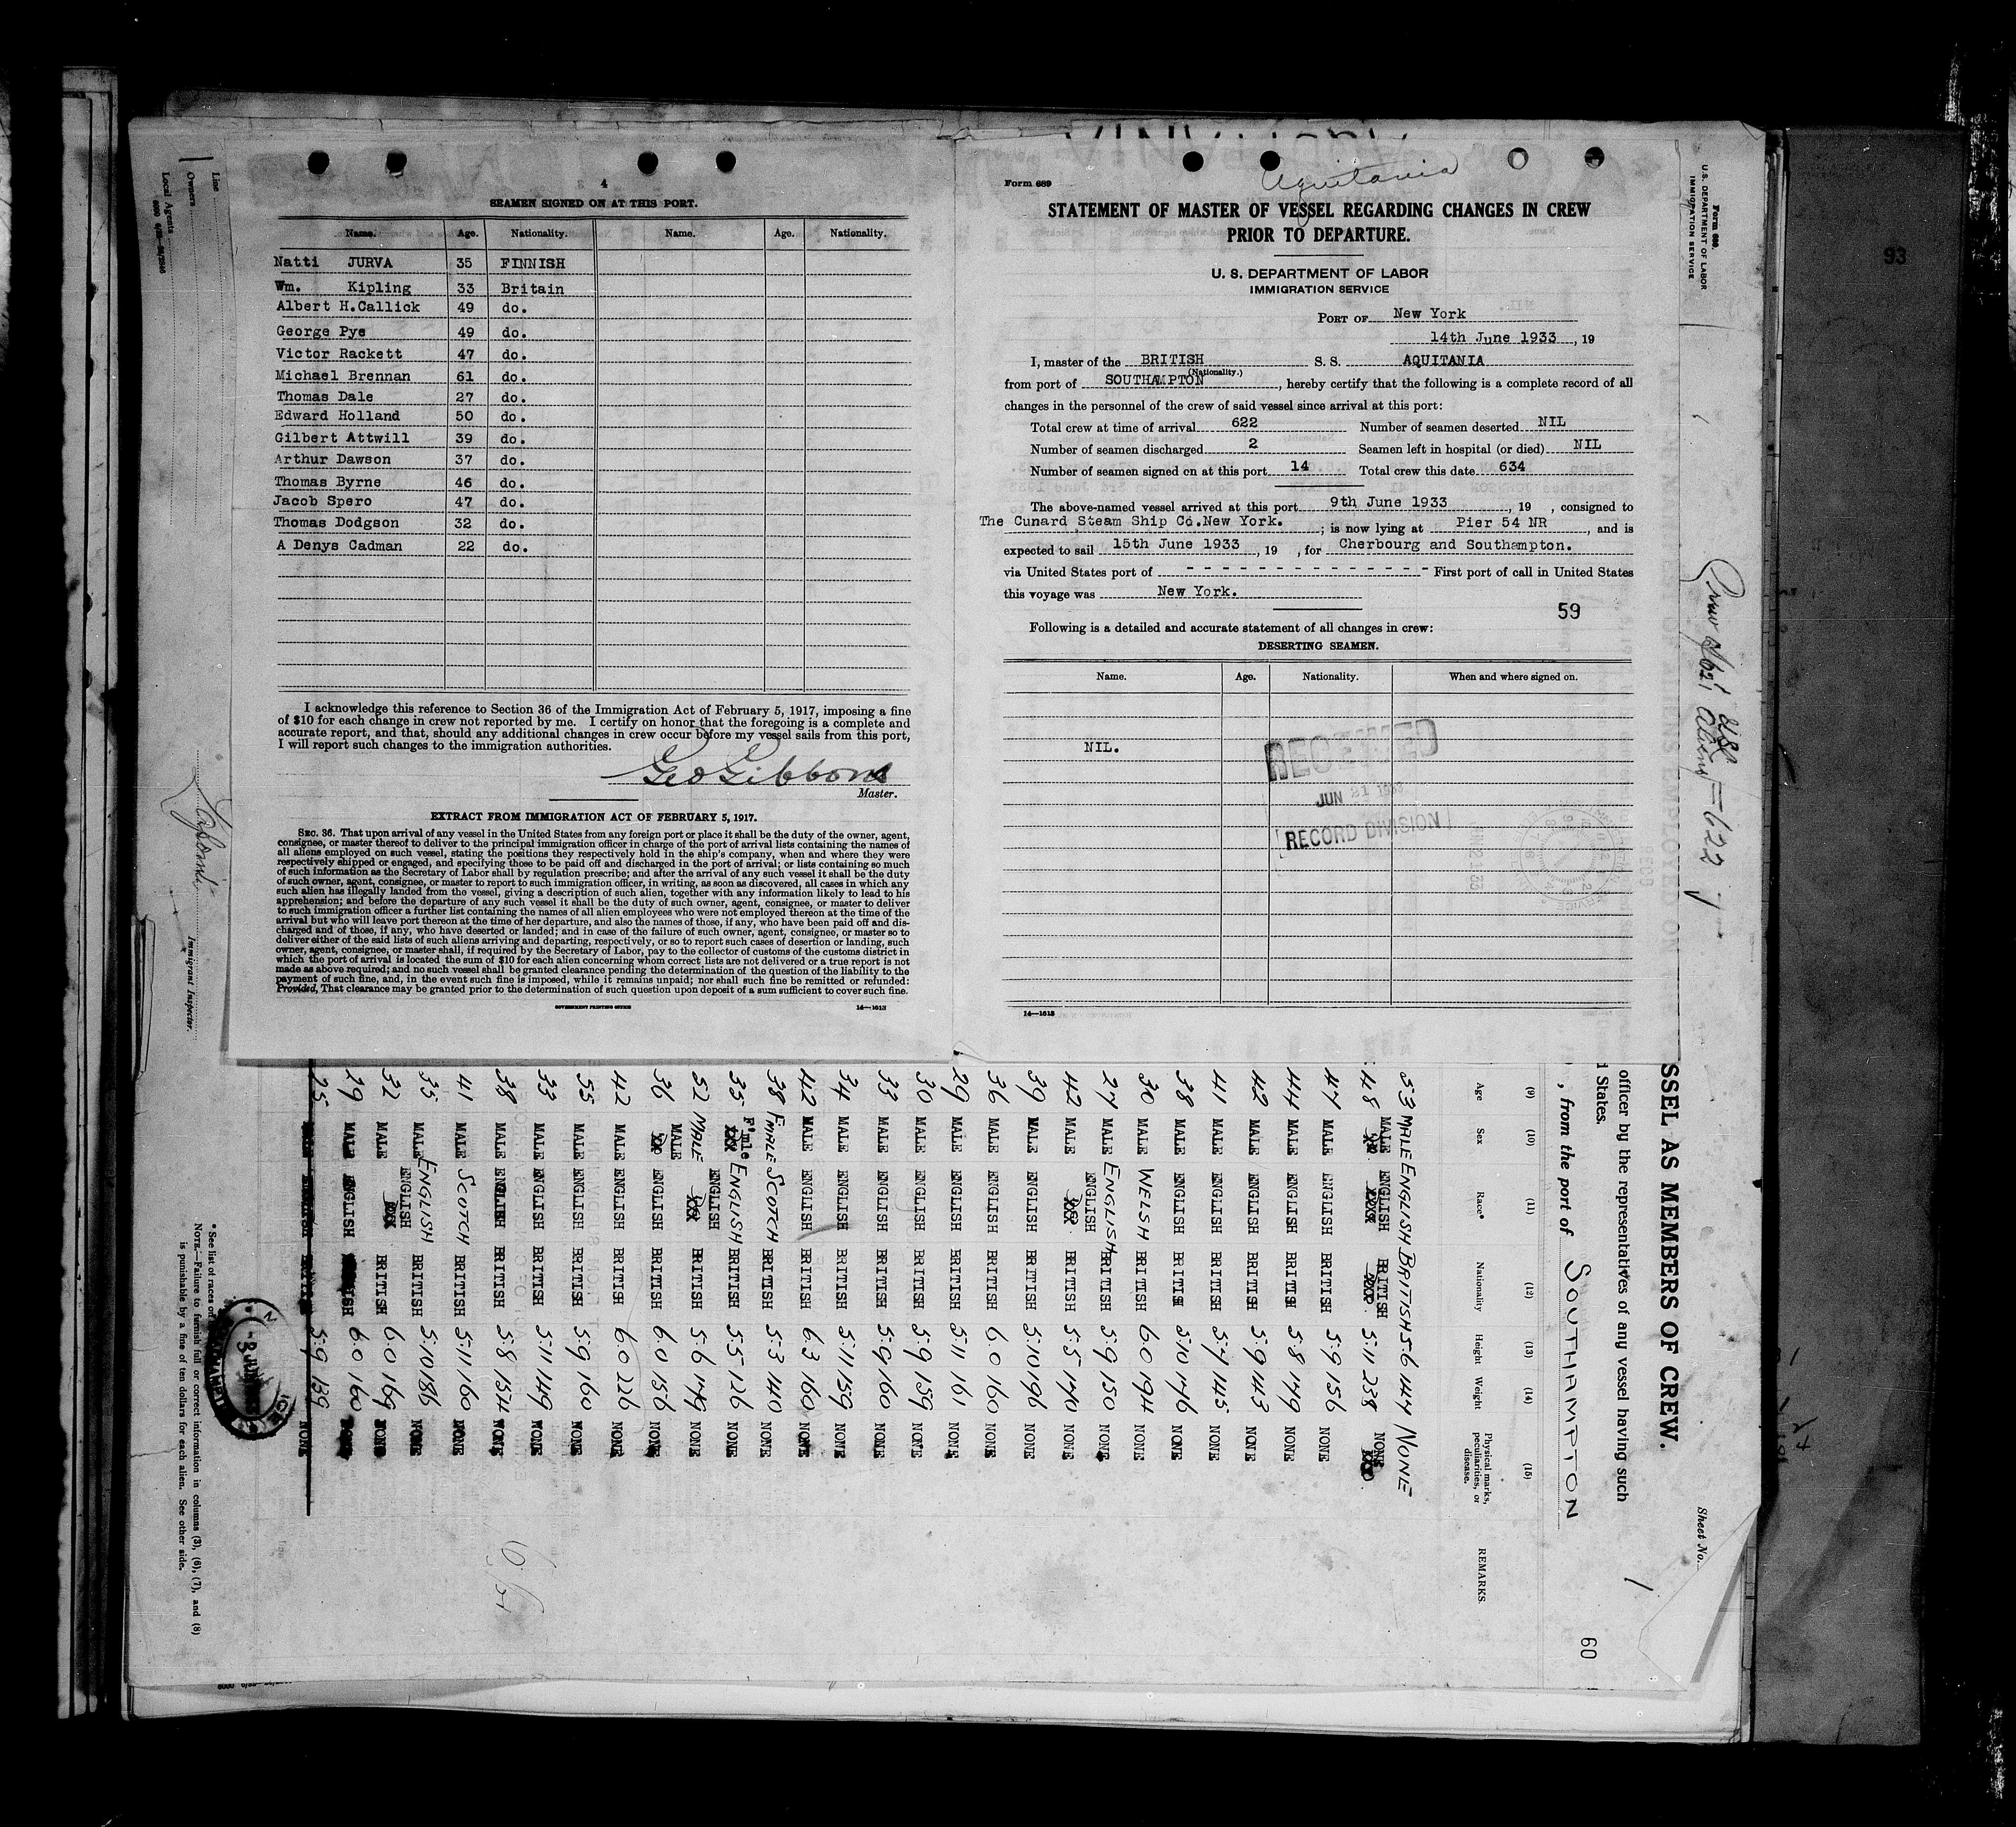 4
SEAMEN SIGNED ON AT THIS PORT.
Name. Age. Nationality. Name. Age. Nationality.
Natti JURVA 35 FINNISH
Wm. Kipling 33 Britain
Albert H.Callick 49 do.
George Pye 49 do.
Victor Rackett 47 do.
Michael Brennan 61 do.
Thomas Dale 27 do.
Edward Holland 50 do.
Gilbert Attwill 39 do.
Arthur Dawson 37 do.
Thomas Byrne 46 do.
Jacob Spero 47 do.
Thomas Dodgson 32 do.
A Denys Cadman 22 do.
I acknowledge this reference to Section 36 of the Immigration Act of February 5, 1917, imposing a fine
of $10 for each change in crew not reported by me. I certify on honor that the foregoing is a complete and
accurate report, and that, should any additional changes in crew occur before my vessel sails from this port,
I will report such changes to the immigration authorities.
Geo Gibbons
Master.
EXTRACT FROM IMMIGRATION ACT OF FEBRUARY 5, 1917.
SEC. 36. That upon arrival of any vessel in the United States from any foreign port or place it shall be the duty of the owner, agent,
consignee, or master thereof to deliver to the principal immigration officer in charge of the port of arrival lists containing the names of
all aliens employed on such vessel, stating the positions they respectively hold in the ship's company, when and where they were
respectively shipped or engaged, and specifying those to be paid off and discharged in the port of arrival; or lists containing so much
of such information as the Secretary of Labor shall by regulation prescribe; and after the arrival of any such vessel it shall be the duty
of such owner, agent, consignee, or master to report to such immigration officer, in writing, as soon as discovered, all cases in which any
such alien has illegally landed from the vessel, giving a description of such alien, together with any information likely to lead to his
apprehension; and before the departure of any such vessel it shall be the duty of such owner, agent, consignee, or master to deliver
to such immigration officer a further list containing the names of all alien employees who were not employed thereon at the time of the
arrival but who will leave port thereon at the time of her departure, and also the names of those, if any, who have been paid off and dis-
charged and of those, if any, who have deserted or landed; and in case of the failure of such owner, agent, consignee, or master so to
deliver either of the said lists of such aliens arriving and departing, respectively, or so to report such cases of desertion or landing, such
owner, agent, consignee, or master shall, if required by the Secretary of Labor, pay to the collector of customs of the customs district in
which the port of arrival is located the sum of $10 for each alien concerning whom correct lists are not delivered or a true report is not
made as above required; and no such vessel shall be granted clearance pending the determination of the question of the liability to the
payment of such fine, and, in the event such fine is imposed, while it remains unpaid; nor shall such fine be remitted or refunded:
Provided, That clearance may be granted prior to the determination of such question upon deposit of a sum sufficient to cover such fine.
GOVERNMENT PRINTING OFFICE 14—1613
Form 689
Aquitania
STATEMENT OF MASTER OF VESSEL REGARDING CHANGES IN CREW
PRIOR TO DEPARTURE.
U. S. DEPARTMENT OF LABOR
IMMIGRATION SERVICE
PORT OF New York
14th June 1933, 19
I, master of the BRITISH S. S. AQUITANIA
(Nationality.)
from port of SOUTHAMPTON, hereby certify that the following is a complete record of all
changes in the personnel of the crew of said vessel since arrival at this port:
Total crew at time of arrival 622 Number of seamen deserted NIL
Number of seamen discharged 2 Seamen left in hospital (or died) NIL
Number of seamen signed on at this port 14 Total crew this date 634
The above-named vessel arrived at this port 9th June 1933, 19 , consigned to
The Cunard Steam Ship Co.New York.; is now lying at Pier 54 NR, and is
expected to sail 15th June 1933, 19 , for Cherbourg and Southampton.
via United States port of - - - - - - - - - - - - - - First port of call in United States
this voyage was New York.
59
Following is a detailed and accurate statement of all changes in crew:
DESERTING SEAMEN.
Name. Age. Nationality. When and where signed on.
NIL.
RECEIVED
JUN 21 1933
RECORD DIVISION
14—1613
Form 689
U.S. DEPARTMENT OF LABOR
IMMIGRATION SERVICE
93
Line
Owners
Local Agents
Immigrant Inspector.
SSEL AS MEMBERS OF CREW.
Sheet No. 1
officer by the representatives of any vessel having such
d States.
, from the port of SOUTHAMPTON
60
(9) (10) (11) (12) (13) (14) (15)
Age Sex Race* Nationality Height Weight Physical marks, peculiarities, or disease. REMARKS.
53 MALE ENGLISH BRITISH 5-6 144 NONE
48 MALE ENGLISH BRITISH 5.11 238 NONE
47 MALE ENGLISH BRITISH 5.9 156 NONE
44 MALE ENGLISH BRITISH 5.8 149 NONE
42 MALE ENGLISH BRITISH 5.9 143 NONE
41 MALE ENGLISH BRITISH 5.4 145 NONE
38 MALE ENGLISH BRITISH 5.10 146 NONE
30 MALE WELSH BRITISH 6.0 194 NONE
27 MALE ENGLISH BRITISH 5.9 150 NONE
42 MALE ENGLISH BRITISH 5.5 140 NONE
39 MALE ENGLISH BRITISH 5.10 196 NONE
36 MALE ENGLISH BRITISH 6.0 160 NONE
29 MALE ENGLISH BRITISH 5.11 161 NONE
30 MALE ENGLISH BRITISH 5.9 159 NONE
33 MALE ENGLISH BRITISH 5.9 160 NONE
34 MALE ENGLISH BRITISH 5.11 159 NONE
42 MALE ENGLISH BRITISH 6.3 160 NONE
38 F'MALE SCOTCH BRITISH 5.3 140 NONE
35 F'mle ENGLISH BRITISH 5.5 126 NONE
52 MALE ENGLISH BRITISH 5.6 149 NONE
36 MALE ENGLISH BRITISH 6.0 156 NONE
42 MALE ENGLISH BRITISH 6.0 226 NONE
55 MALE ENGLISH BRITISH 5.9 160 NONE
33 MALE ENGLISH BRITISH 5.11 149 NONE
38 MALE ENGLISH BRITISH 5.8 154 NONE
41 MALE SCOTCH BRITISH 5.11 160 NONE
35 MALE ENGLISH BRITISH 5.10 186 NONE
32 MALE ENGLISH BRITISH 6.0 169 NONE
29 MALE ENGLISH BRITISH 6.0 160 NONE
25 5.9 139 NONE
*See list of races on
NOTE.—Failure to furnish full or correct information in columns (3), (6), (7), and (8)
is punishable by a fine of ten dollars for each alien. See other side.